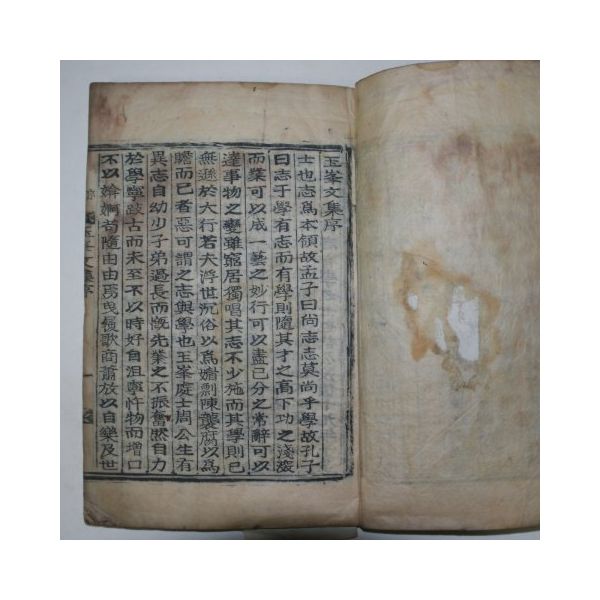 玉峯文集序
士也志爲本領故孟子曰尚志志莫尚乎學故孔子
曰志于學有志而有學則隨其才之高下功之淺深
而業可以成一藝之妙行可以盡己分之常辭可以
達事物之變雖窮居獨唱其志不少施而其學則已
無遜於大行若夫浮世沉俗以爲 剽陳襲腐以爲
贍而已者惡可謂之志與學也玉峯處士周公生有
異志自幼少子弟過長而慨先業之不振奮然自力
於學寧跂古而未至不以時好自沮寧忤物而增口
不以婀苟隨由由 曳慢歌商蕭放以自樂及世
文集序
一